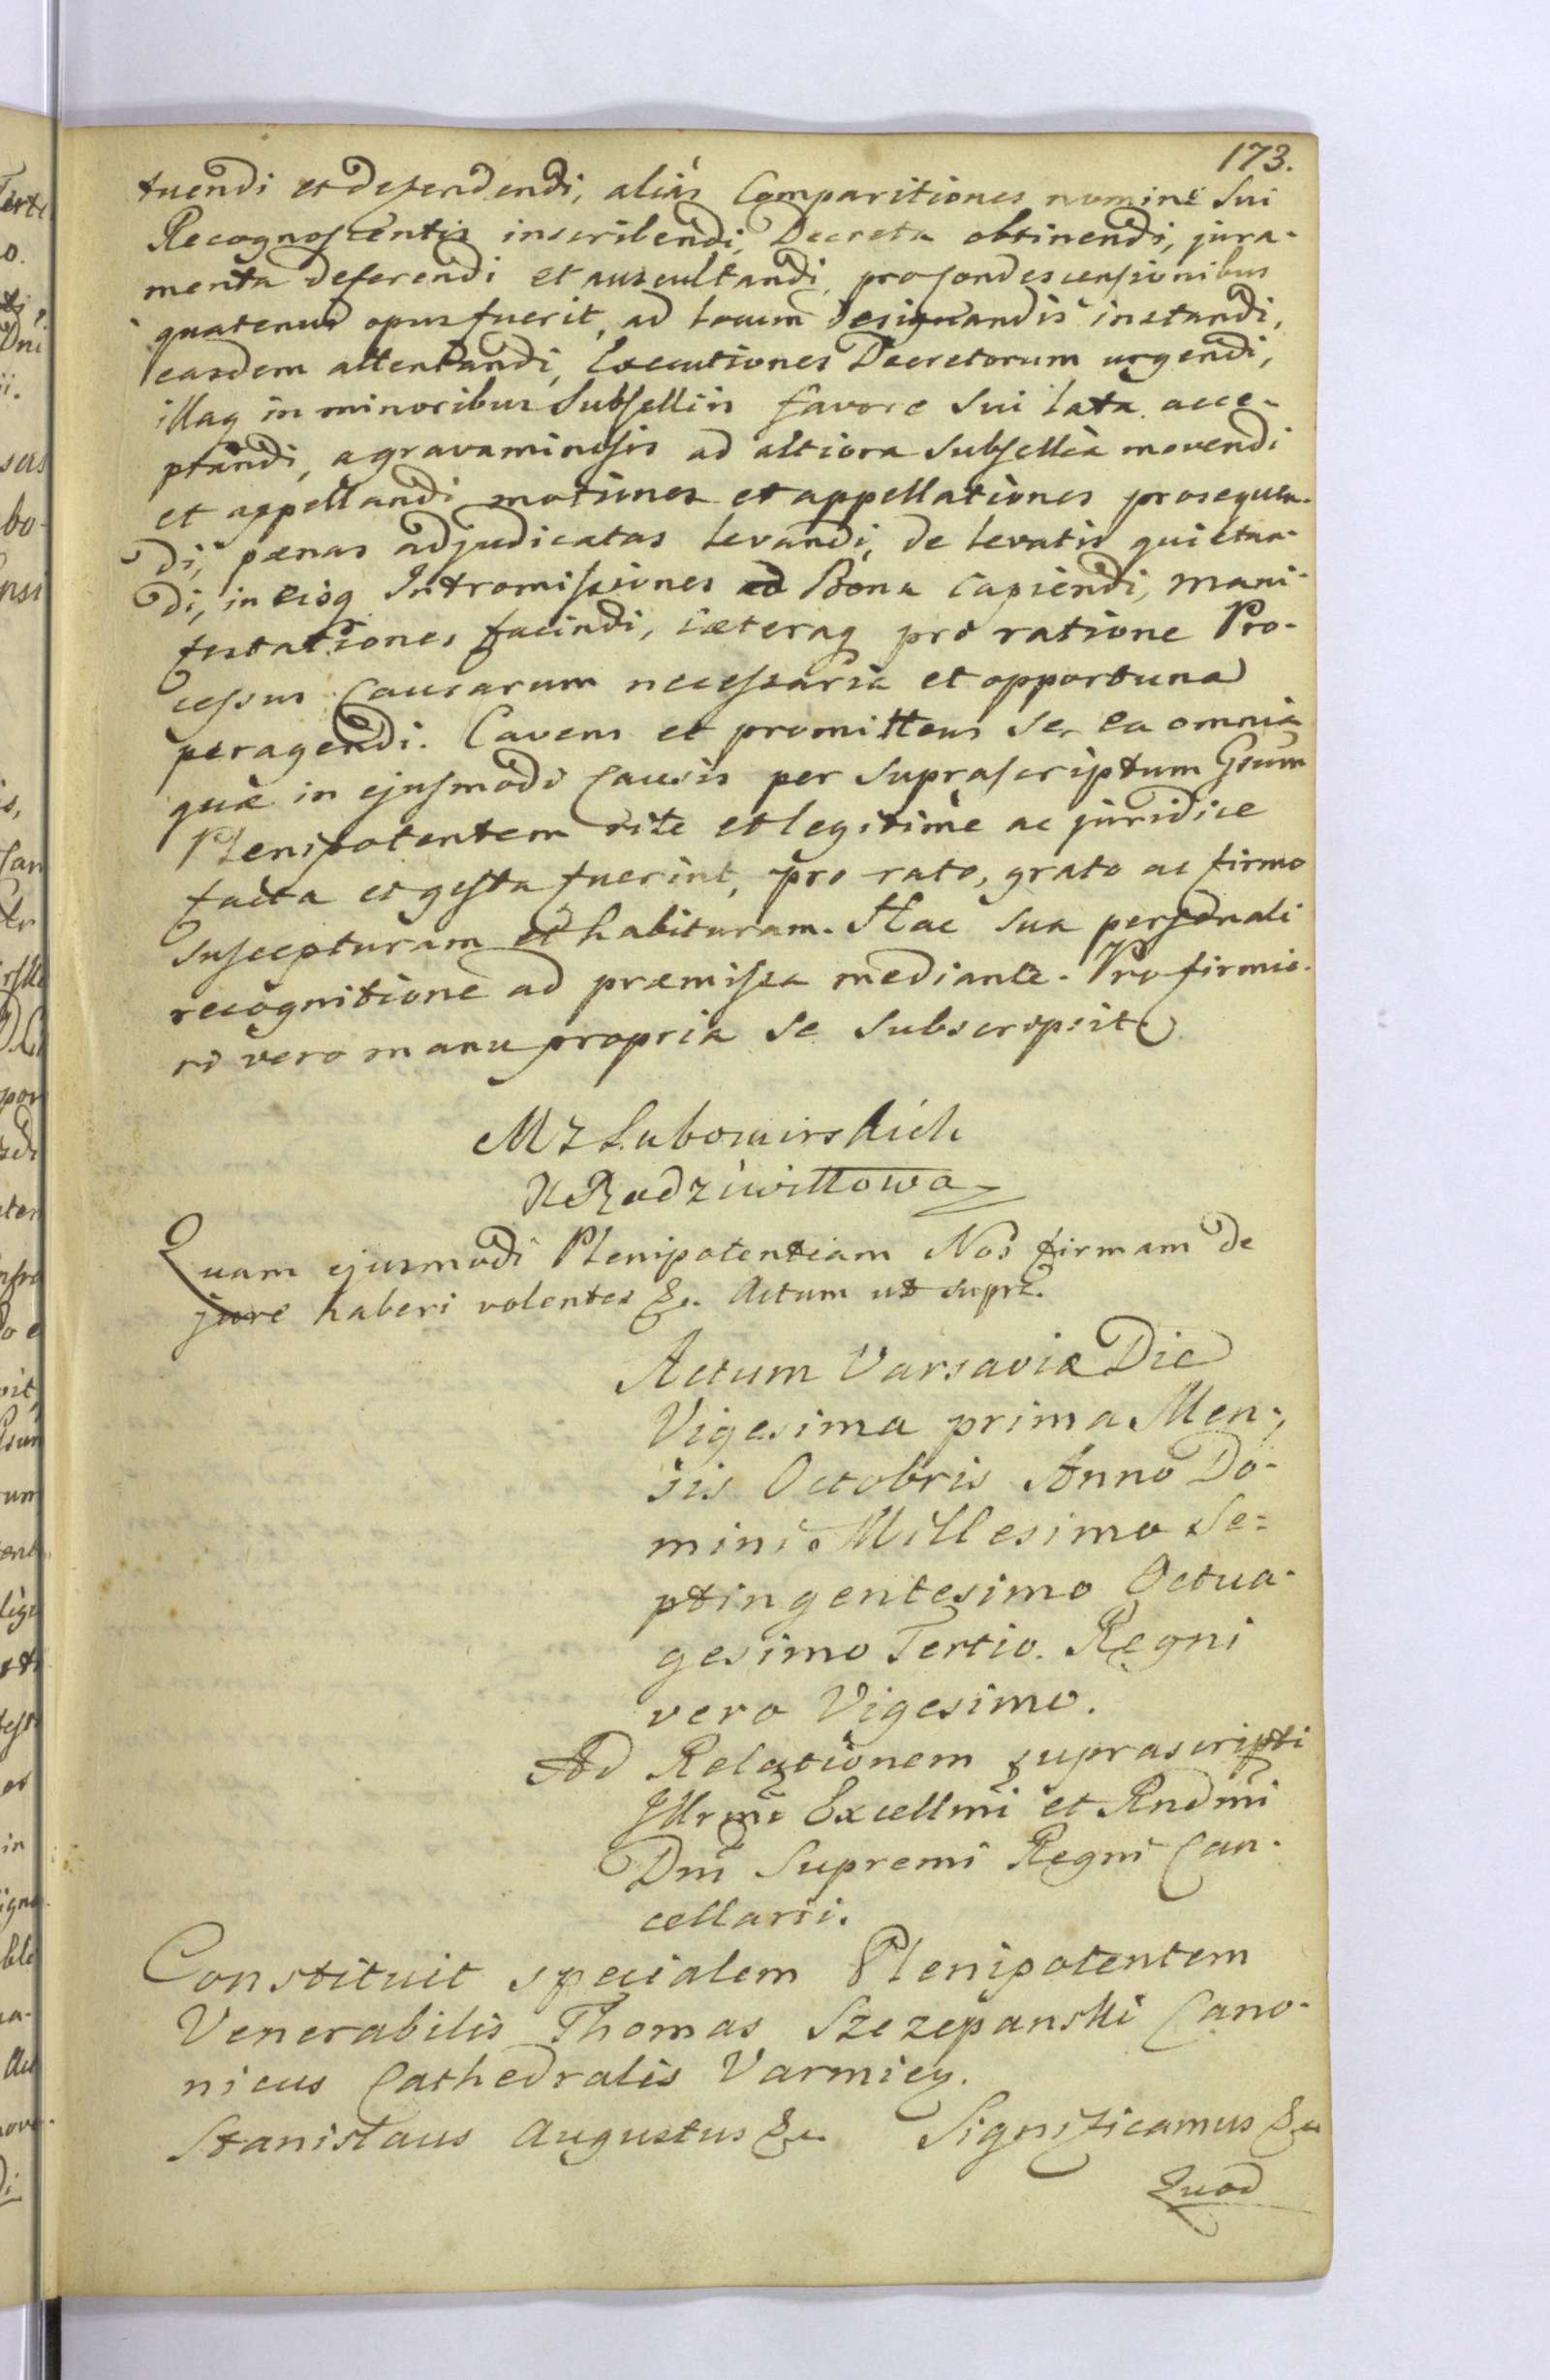 173.
tuendi et defendendi, aliàs Comparitiones nomine Sui
Recognoscentis inscribendi, Decreta obtinendi, jura-
menta deferendi et auscultandi, pro condescensionibus
quatenus opus fuerit, ad locum designandis instandi,
easdem attentandi, Executiones Decretorum urgendi,
illaq in minoribus Subselliis favore Sui lata acce-
ptandi, a gravaminosis ad altiora Subsellia movendi
et appellandi, motiones et appellationes prosequen-
di, pænas adjudicatas levandi, de levatis quietan-
di, in eisq Intromissiones ad Bona Capiendi, mani-
festationes faciendi, cæteraq pro ratione Pro-
cessus Causarum necessaria et opportuna
peragendi. Cavens et promittens Se ea omnia
quæ in ejusmodi Causis per Suprascriptum Gsum
Plenipotentem rite et legitime ac juridice
facta et gesta fuerint, pro rato, grato ac firmo
Suscepturam et habituram. Hac Sua personali
recognitione ad præmissa mediante. Pro firmio-
ri vero manu propria Se Subscripsit
M Z Lubomirskich
X Radziwiłłowa
Quam ejusmodi Plenipotentiam Nos firmam de
jure haberi volentes &c. Actum ut supra.
Actum Varsaviæ Die
Vigesima prima Men-
sis Octobris Anno Do-
mini Millesimo Se=
ptingentesimo Octua-
gesimo Tertio. Regni
vero Vigesimo.
Ad Relationem suprascripti
Illrmi Excellmi et Rndmi
Dni Supremi Regni Can-
cellarii.
Constituit specialem Plenipotentem
Venerabilis Thomas Szczepanski Cano-
nicus Cathedralis Varmien.
Stanislaus Augustus &c. Significamus &c
Quod